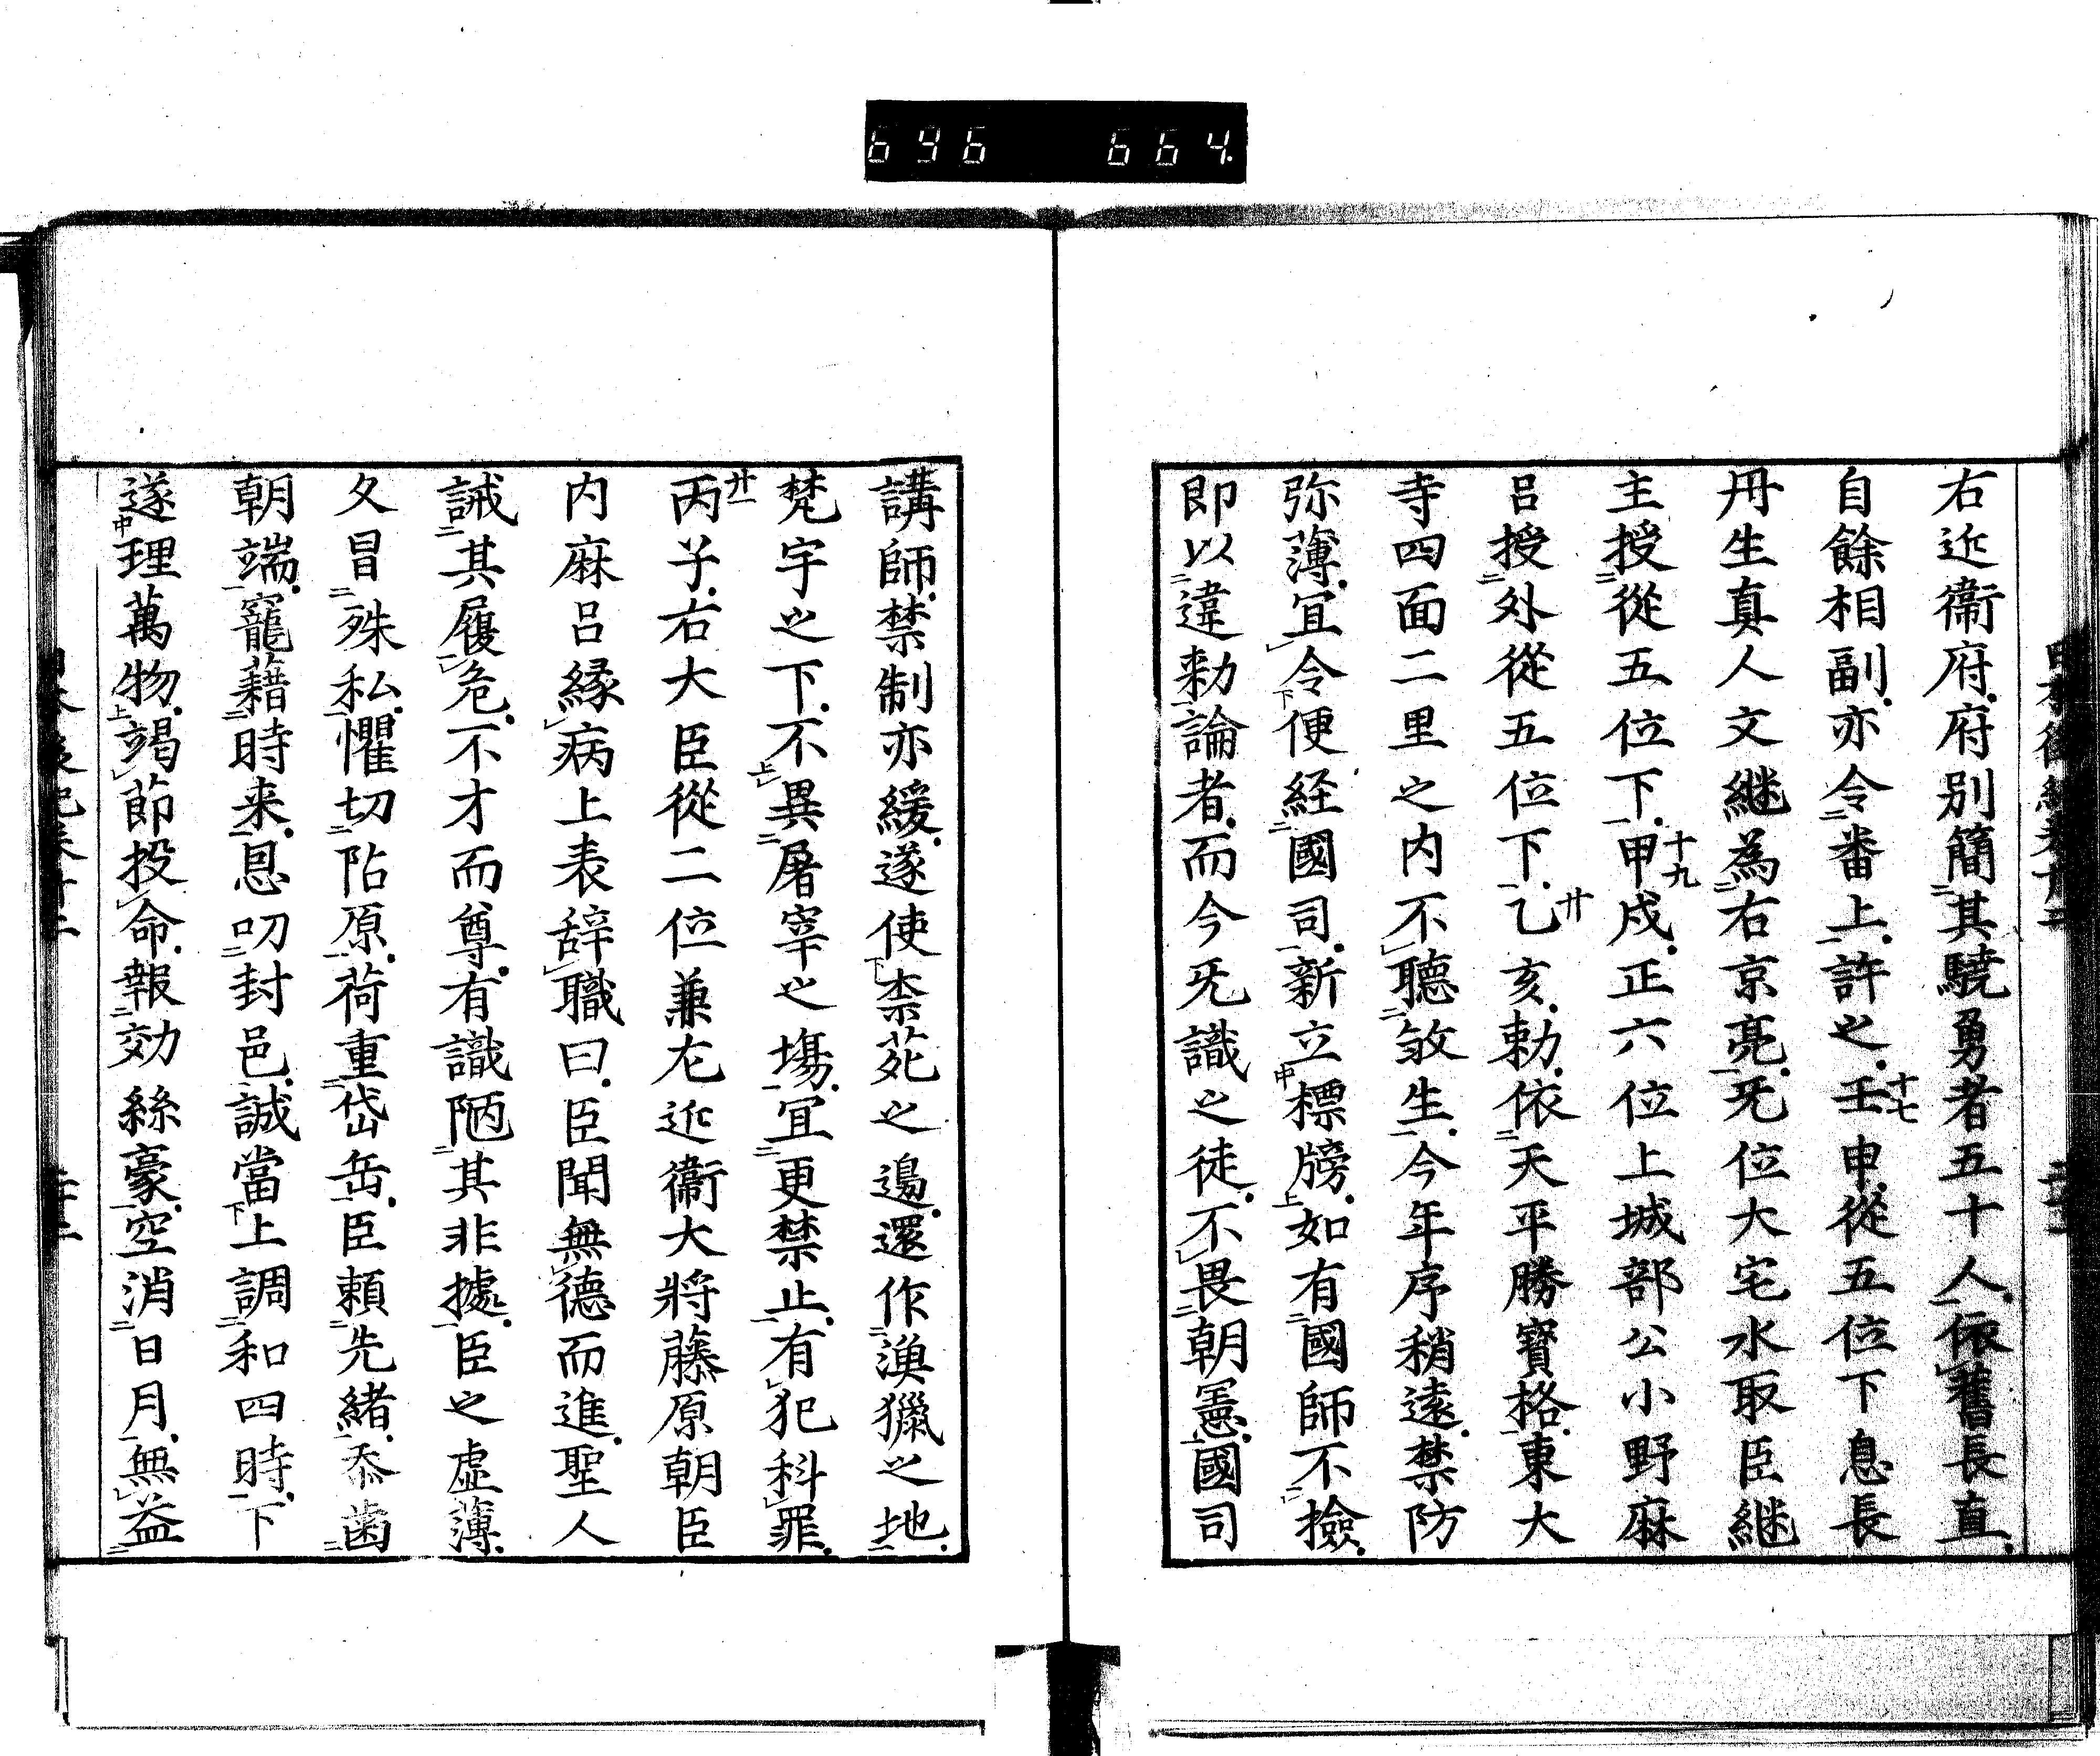 696 664.
右近衞府。府別簡其驍勇者五十人。依舊長直。
自餘相副。亦令番上。許之。十七壬申。從五位下息長
丹生真人文継為右京亮。旡位大宅水取臣継
主授從五位下。十九甲戌。正六位上城部公小野麻
呂授外從五位下。廿乙亥。勅。依天平勝寳格。東大
寺四面二里之内不聽敓生。今年序稍遠。禁防
弥薄。冝令便経國司。新立標牓。如有國師不撿。
即以違勑論者。而今旡識之徒。不畏朝憲。國司
講師。禁制亦緩。遂使柰苑之邊。還作漁獵之地。
梵宇之下。不異屠宰之塲。冝更禁止。有犯科罪。
廿一丙子。右大臣從二位兼左近衞大將藤原朝臣
内麻呂縁病上表辞職曰。臣聞無德而進。聖人
誡其履危。不才而尊。有識陋其非據。臣之虚薄。
久冒殊私。懼切阽原。荷重岱岳。臣頼先緒。忝齒
朝端。寵藉時来。恩叨封邑。誠當上調和四時。下
遂理萬物。竭節投命。報効絲豪。空消日月。無益